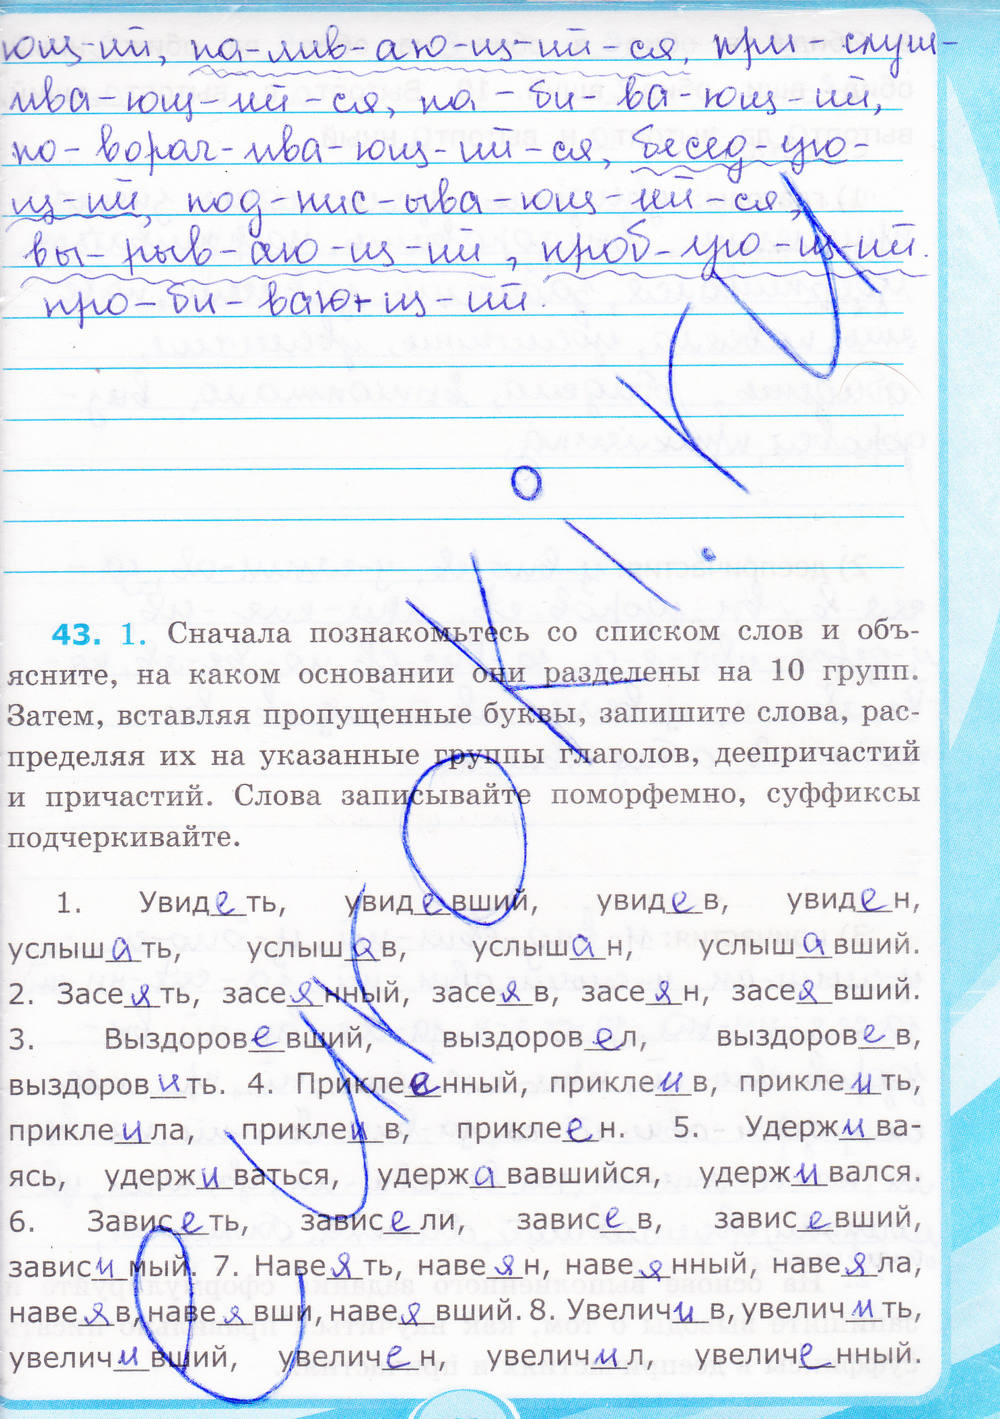 ющ-ий, на-лив-аю-щ-ий-ся, при-слуш-
ива-ющ-ий-ся, на-би-ва ющ-ий,
по-ворач-ива-ющ-ий-ся, бесед-ую-
щ-ий, под-пис-ыва-ющ-ий-ся,
вы-рыв-аю-щ-ий, проб-ую-щ-ий.
про-би-ваю+щ-ий.
43. 1. Сначала познакомьтесь со списком слов и объ-
ясните, на каком основании они разделены на 10 групп.
Затем, вставляя пропущенные буквы, запишите слова, рас-
пределяя их на указанные группы глаголов, деепричастий
и причастий. Слова записывайте поморфемно, суффиксы
подчеркивайте.
1. Увидеть, увидевший, увидев, увиден,
услышать, услышав, услышан, услышавший.
2. Засеять, засеянный, засеяв, засеян, засеявший.
3. Выздоровевший, выздоровел, выздоровев,
выздоровить. 4. Приклеенный, приклеив, приклеить,
приклеила, приклеив, приклеен. 5. Удержива-
ясь, удерживаться, удержававшийся, удерживался.
6. Зависеть, зависели, зависев, зависевший,
зависимый. 7. Навеять, навеян, навеянный, навеяла,
навеяв, навеявши, навеявший. 8. Увеличив, увеличить,
увеличивший, увеличен, увеличил, увеличенный.
GUROKI.RU